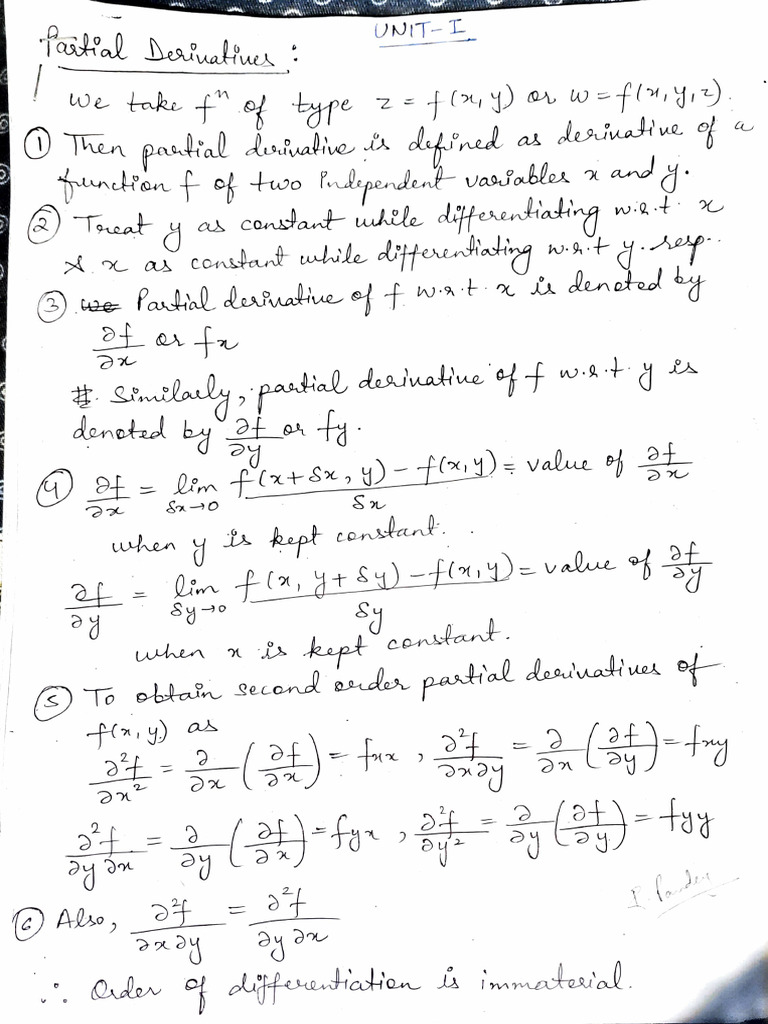 UNIT-I
Partial Derivatives :
We take fⁿ of type z = f(x, y) or w = f(x, y, z).
① Then partial derivative is defined as derivative of a
function f of two independent variables x and y.
② Treat y as constant while differentiating w.r.t. x
& x as constant while differentiating w.r.t y. resp.
③ we Partial derivative of f w.r.t. x is denoted by
∂f/∂x or fx
#. Similarly, partial derivative of f w.r.t. y is
denoted by ∂f/∂y or fy.
④ ∂f/∂x = lim δx→0 f(x+δx, y) − f(x, y)/δx = value of ∂f/∂x
when y is kept constant.
∂f/∂y = lim δy→0 f(x, y+δy) − f(x, y)/δy = value of ∂f/∂y
when x is kept constant.
⑤ To obtain second order partial derivatives of
f(x, y) as
∂²f/∂x² = ∂/∂x (∂f/∂x) = fxx , ∂²f/∂x∂y = ∂/∂x (∂f/∂y) = fxy
∂²f/∂y∂x = ∂/∂y (∂f/∂x) = fyx , ∂²f/∂y² = ∂/∂y (∂f/∂y) = fyy
⑥ Also, ∂²f/∂x∂y = ∂²f/∂y∂x
∴ Order of differentiation is immaterial.